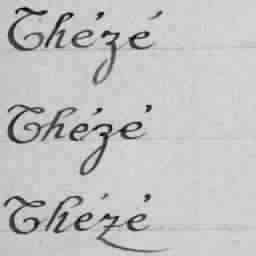 Thézé
Thézé
Thézé